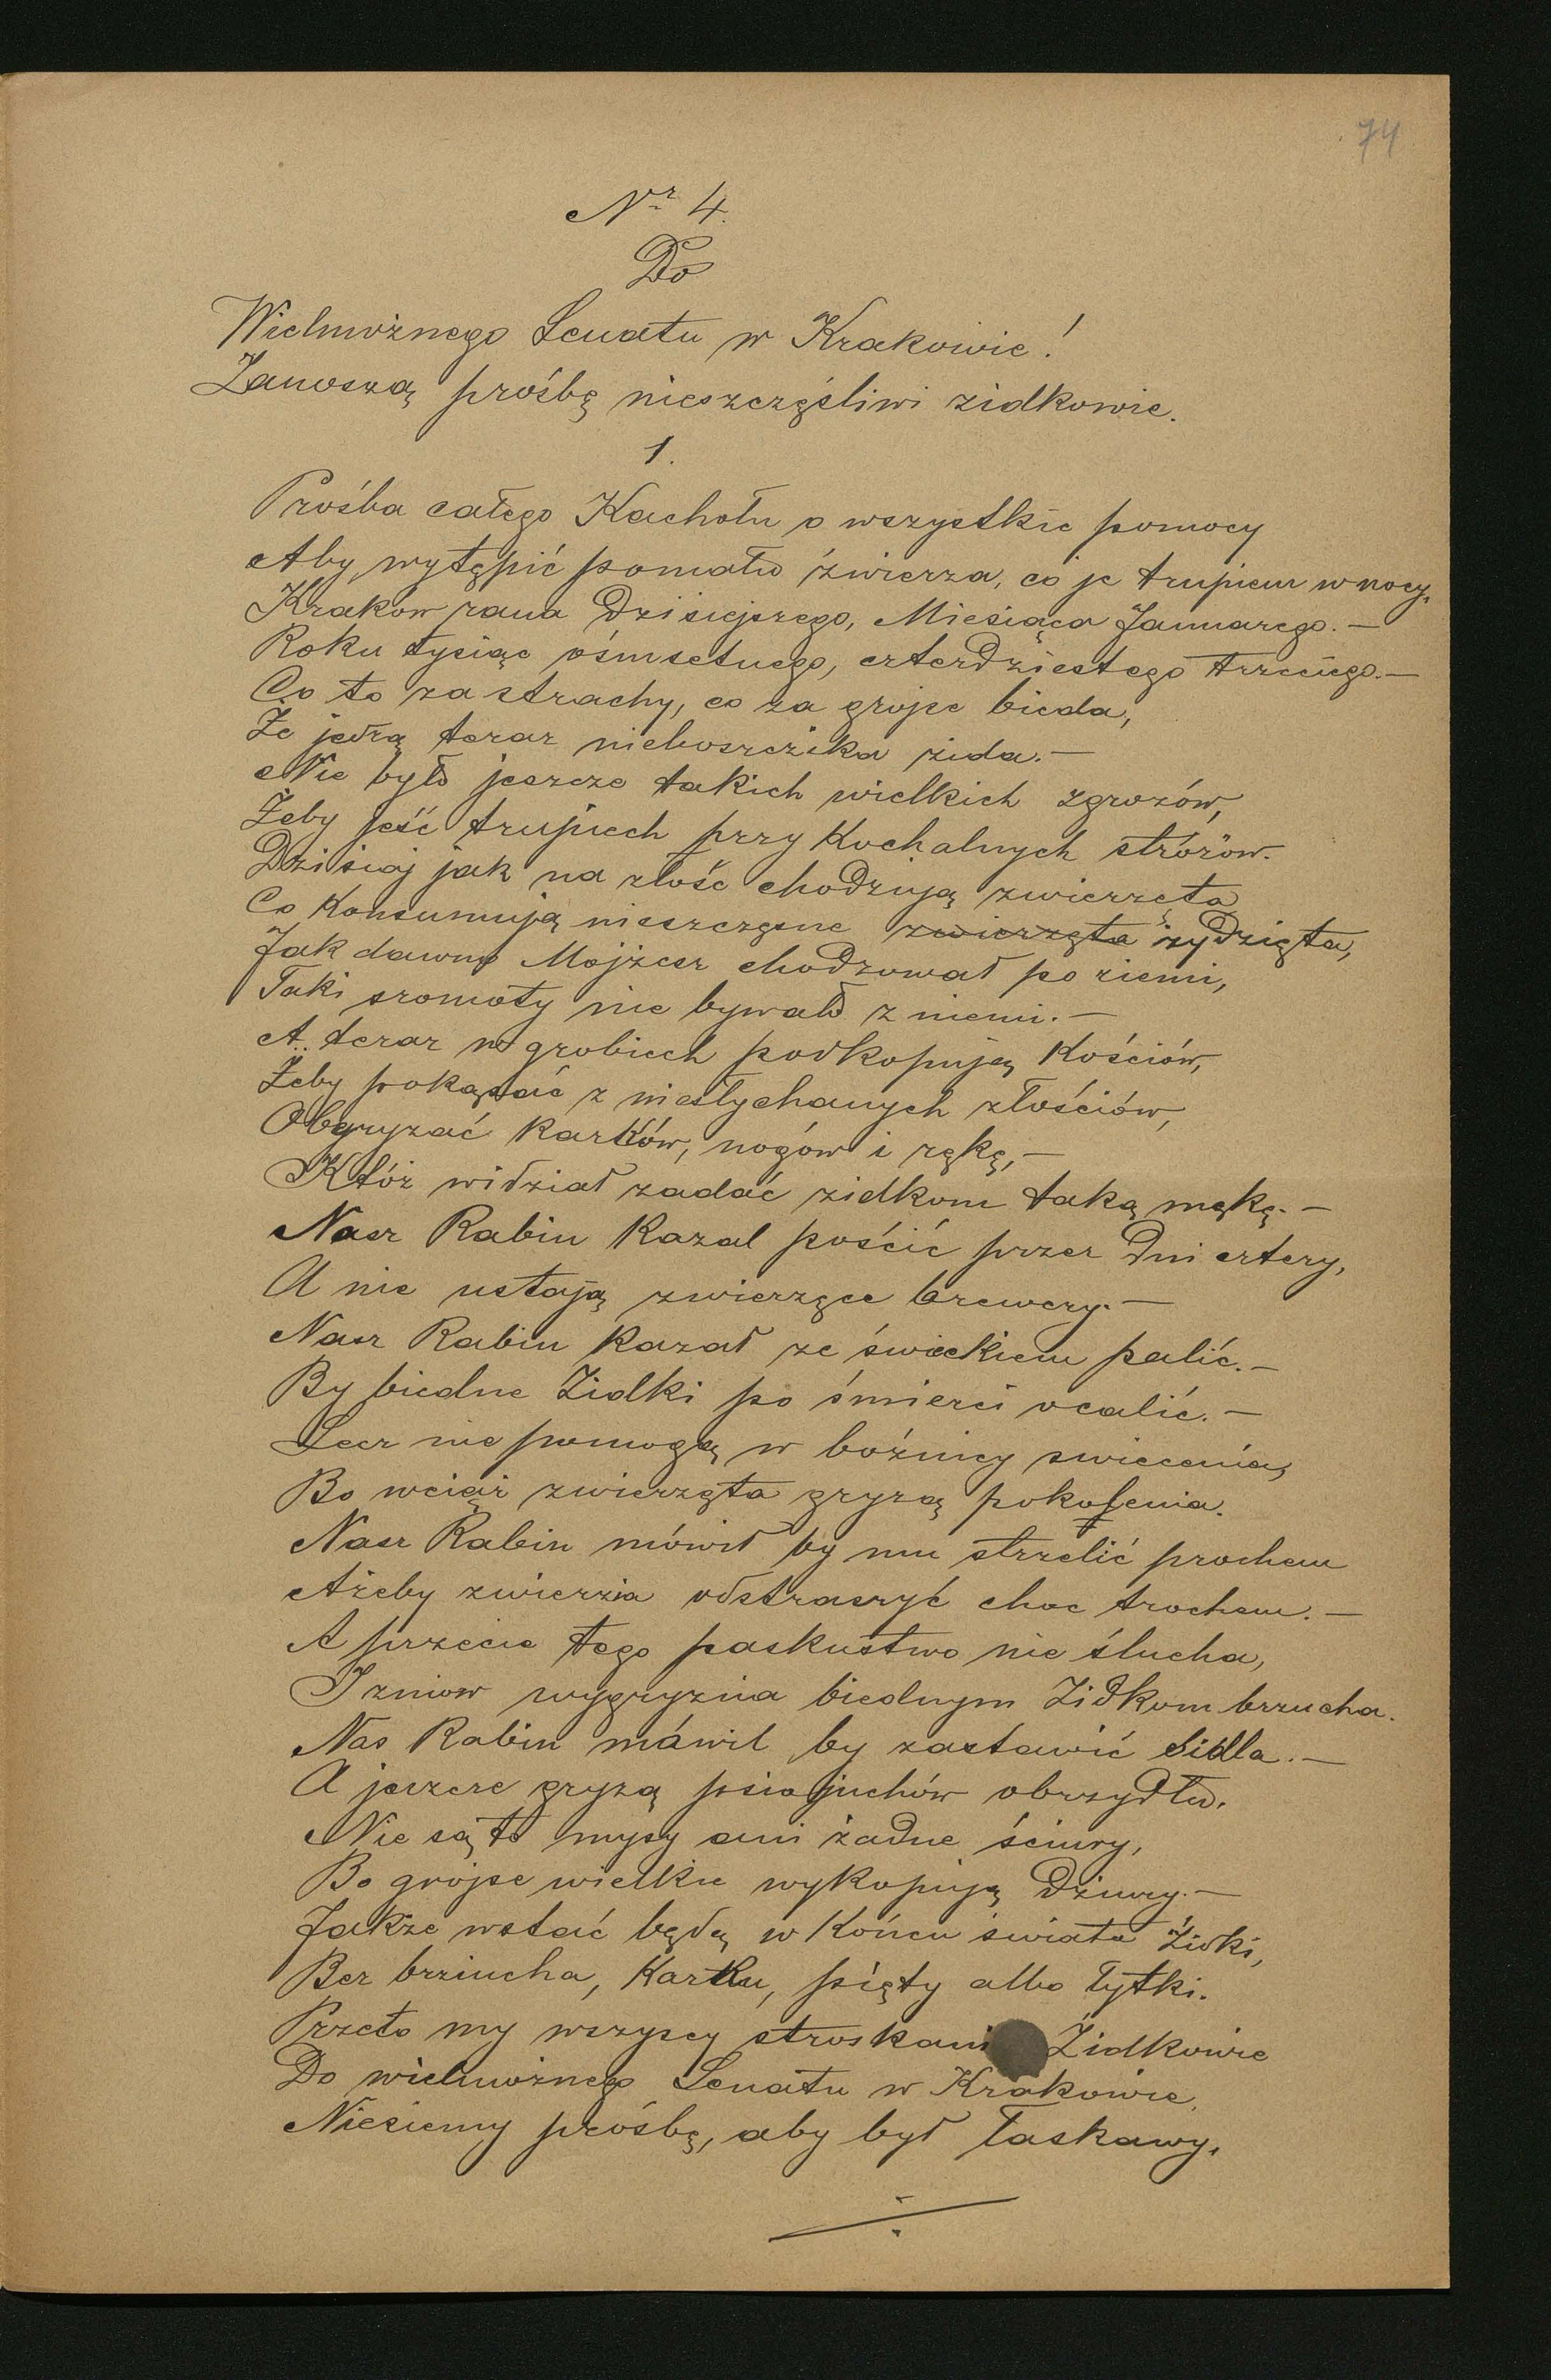 74
Nr 4.
Do
Wielmożnego Senatu w Krakowie!
Zanoszą prośbę nieszczęśliwi zidkowie.
1.
Prośba całego Kachołu o wszystkie pomocy
Aby wytępić pomału źwierza, co je trupiem w nocy.
Krakow rana Dzisiejszego, Miesiąca Januarego. —
Roku tysiąc ośmsetnego, czterdziestego trzeciego. —
Co to za strachy, co za grojse bieda,
Że jedzą teraz nieboszczika żida. —
Nie było jeszcze takich wielkich zgrozów,
Żeby jeść trupiech przy Kochalnych stróżów.
Dzisiaj jak na złość chodziją zwierzęta
Co Konsumują nieszczęsne zwierzęta żydzięta,
Jak dawno Mojżesz chodzował po ziemi,
Taki sromoty nie bywało z niemi. —
A teraz w grobiech podkopują Kościów,
Żeby pokąsać z niesłychanych złościów,
Obgryzać Karków, nogów i rękę, —
Któż widział zadać zidkom taką mękę. —
Nasz Rabin Kazal pościć przez Dni cztery,
A nie ustają zwierzęce brewery. —
Nasz Rabin Kazał ze świeckiem palić. —
By biedne Żidki po śmierci ocalić. —
Lecz nie pomogą w bóźnicy swiecenia,
Bo wciąż zwierzęta gryzą pokolenia.
Nasz Rabin mówił by mu strzelić prochem
Ażeby zwierzia odstraszyć choc trochem. —
A przecie tego paskustwo nie ślucha,
I zniow wygryzia biednym Żidkom brzucha.
Nas Rabin máwil by zastawić Sidla. —
A jeszcze gryzą psiajuchów obrzydłu.
Nie są to mysy ani żadne ściury,
Bo grojse wielkie wykopują Dziury. —
Jakże wstać będą w Końcu świata Żidki,
Bez brziucha, Karku, pięty albo łytki.
Przeto my wszyscy stroskani Żidkowie
Do wielmożnego Senatu w Krakowie,
Niesiemy prośbę, aby był łaskawy.